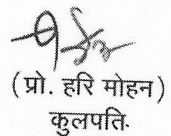 ( प्रो. हरि मोहन )
कुलपति.